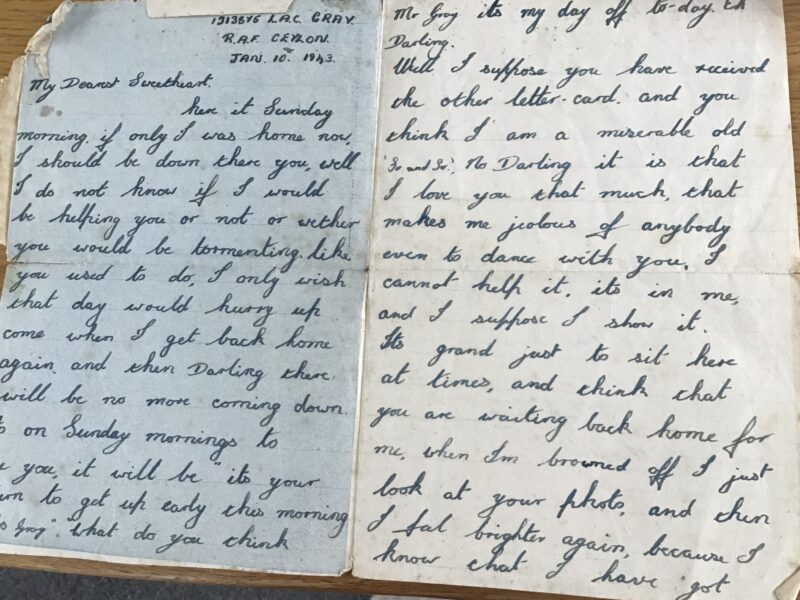 1313876 L.A.C. GRAY.
R.A.F. CEYLON.
JAN. 10th 1943.
My Dearest Sweetheart.
here it Sunday
morning. if only I was home now,
I should be down there you, well
I do not know if I would
be helping you or not or wether
you would be tormenting. like
you used to do, I only wish
that day would hurry up
come when I get back home
again. and then Darling there
will be no more coming down
on Sunday mornings to
you, it will be "its your
to get up early this morning
Gray". What do you think
Mr Gray its my day off to-day. Eh
Darling.
Well I suppose you have received
the other letter-card. and you
think I am a miserable old
'So and So'. No Darling it is that
I love you that much, that
makes me jeolous of anybody
even to dance with you. I
cannot help it. its in me,
and I suppose I show it.
Its grand just to sit here
at times, and think that
you are waiting back home for
me, when I'm browned off I just
look at your photo, and then
I fal brighter again, because I
know that I have got